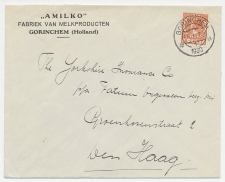 „AMILKO"
FABRIEK VAN MELKPRODUCTEN
GORINCHEM (Holland)
GORINCHEM
1930
The Yorkshire Insurance Co
p/a Fatum
Groenhovenstraat 2
Den Haag